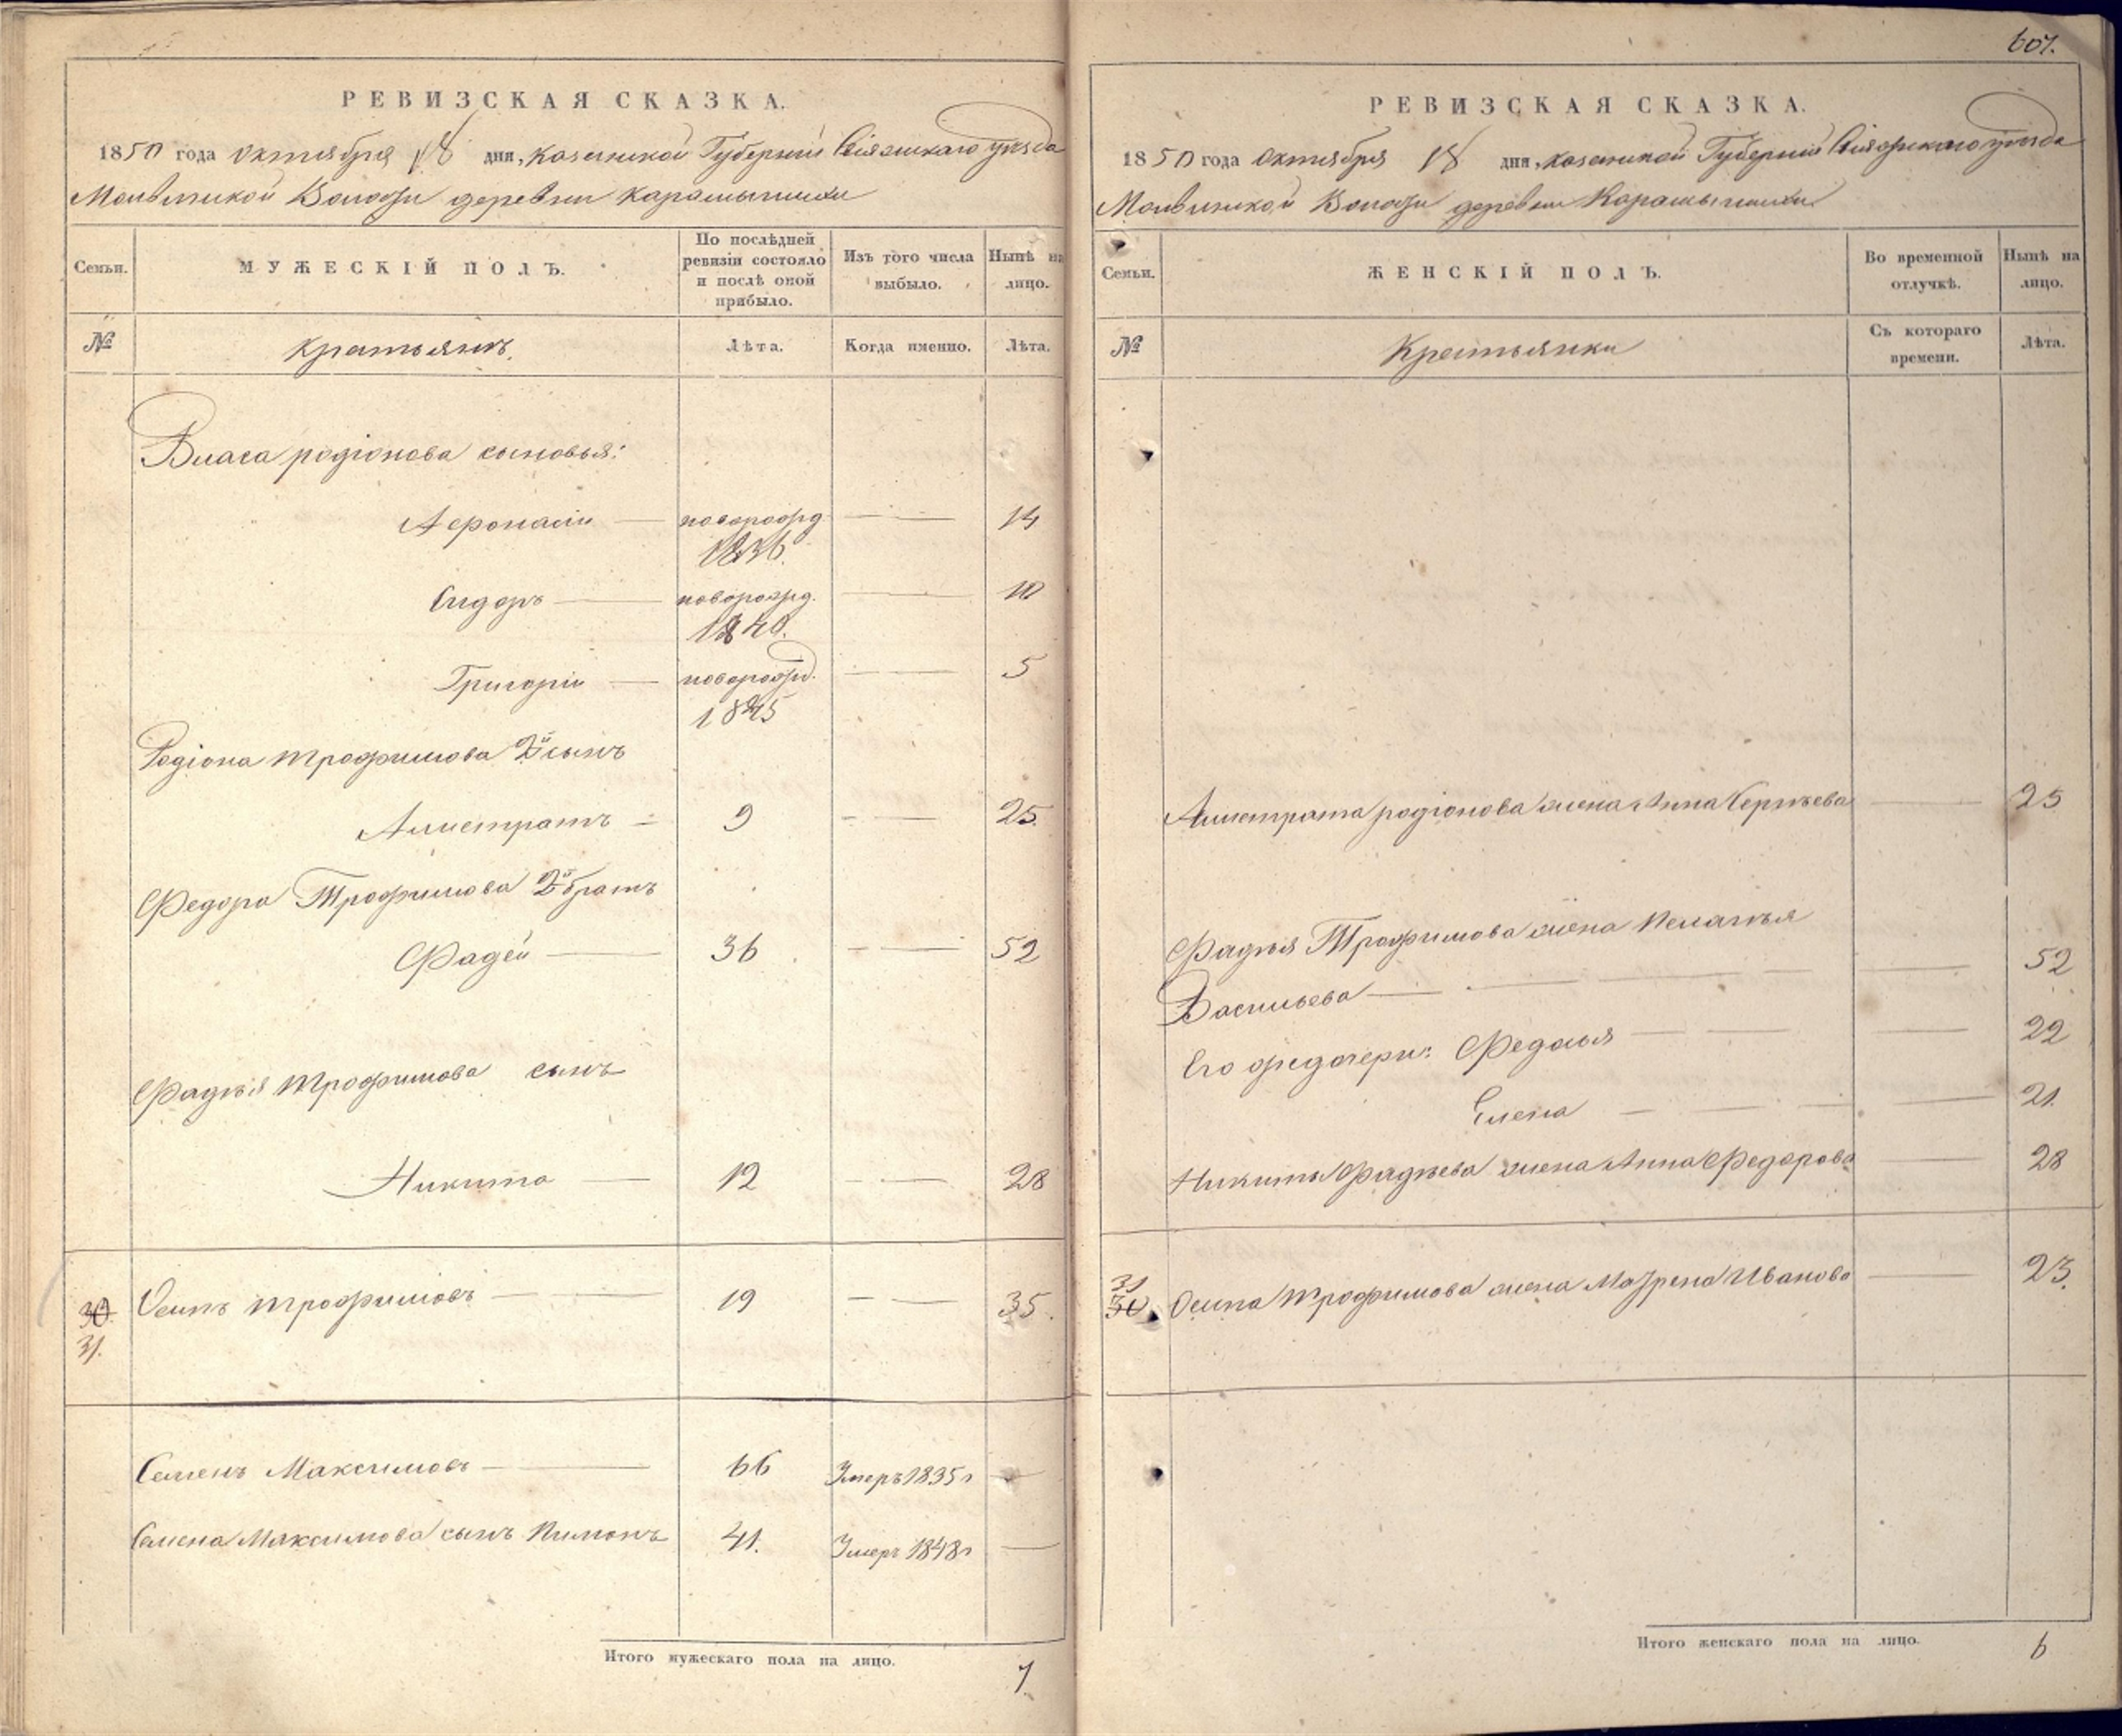 607.
РЕВИЗСКАЯ СКАЗКА.
1850 года октября 18 дня, Казанской Губернии Свіяжскаго уѣзда
Молвинской Волости деревни Карамышихи
Семьи.
МУЖЕСКІЙ ПОЛЪ.
По послѣдней ревизіи состояло и послѣ оной прибыло.
Изъ того числа выбыло.
Нынѣ на лицо.
№
Крестьянъ.
Лѣта.
Когда именно.
Лѣта.
Власа родіонова сыновья:
Афонасіи — новорожд 1836. — 14
Сидоръ — новорожд. 1840. — 10
Григоріи — новорожд. 1845 — 5
Родіона трофимова 2й сынъ
Алистратъ — 9 — 25.
Федора Трофимова 2й братъ
Фадей — 36 — 52
Фадѣя трофимова сынъ
Никита — 12 — 28
30. Осипъ трофимовъ — 19 — 35.
31.
Семенъ Максимовъ — 66 Умеръ 1835 г —
Семена Максимова сынъ Пимонъ 41. Умеръ 1848 г —
Итого мужескаго пола на лицо. 7
РЕВИЗСКАЯ СКАЗКА.
1850 года Октября 18 дня, Казанской Губерніи Свіяжскаго уѣзда
Молвинской Волости деревни Карамышихи
Семьи.
ЖЕНСКІЙ ПОЛЪ.
Во временной отлучкѣ.
Нынѣ на лицо.
№
Крестьянки
Съ котораго времени.
Лѣта.
Алистрата родіонова жена Анна Сергѣева — 25
Фадѣя Трофимова жена Пелагѣя
Васильева — 52
Его Фадея дочери: Федосья — 22
Елена — 21.
Никиты Фадѣева жена Анна Федорова — 28
31
30. Осипа трофимова жена Матрена Иванова — 23.
Итого женскаго пола на лицо. 6